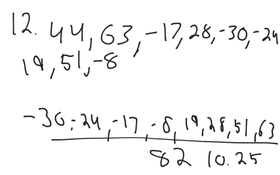 12. 44, 63, -17, 28, -30, -24
19, 51, -8
-30, -24, -17, -8, 19, 28, 51, 63
82 10.25